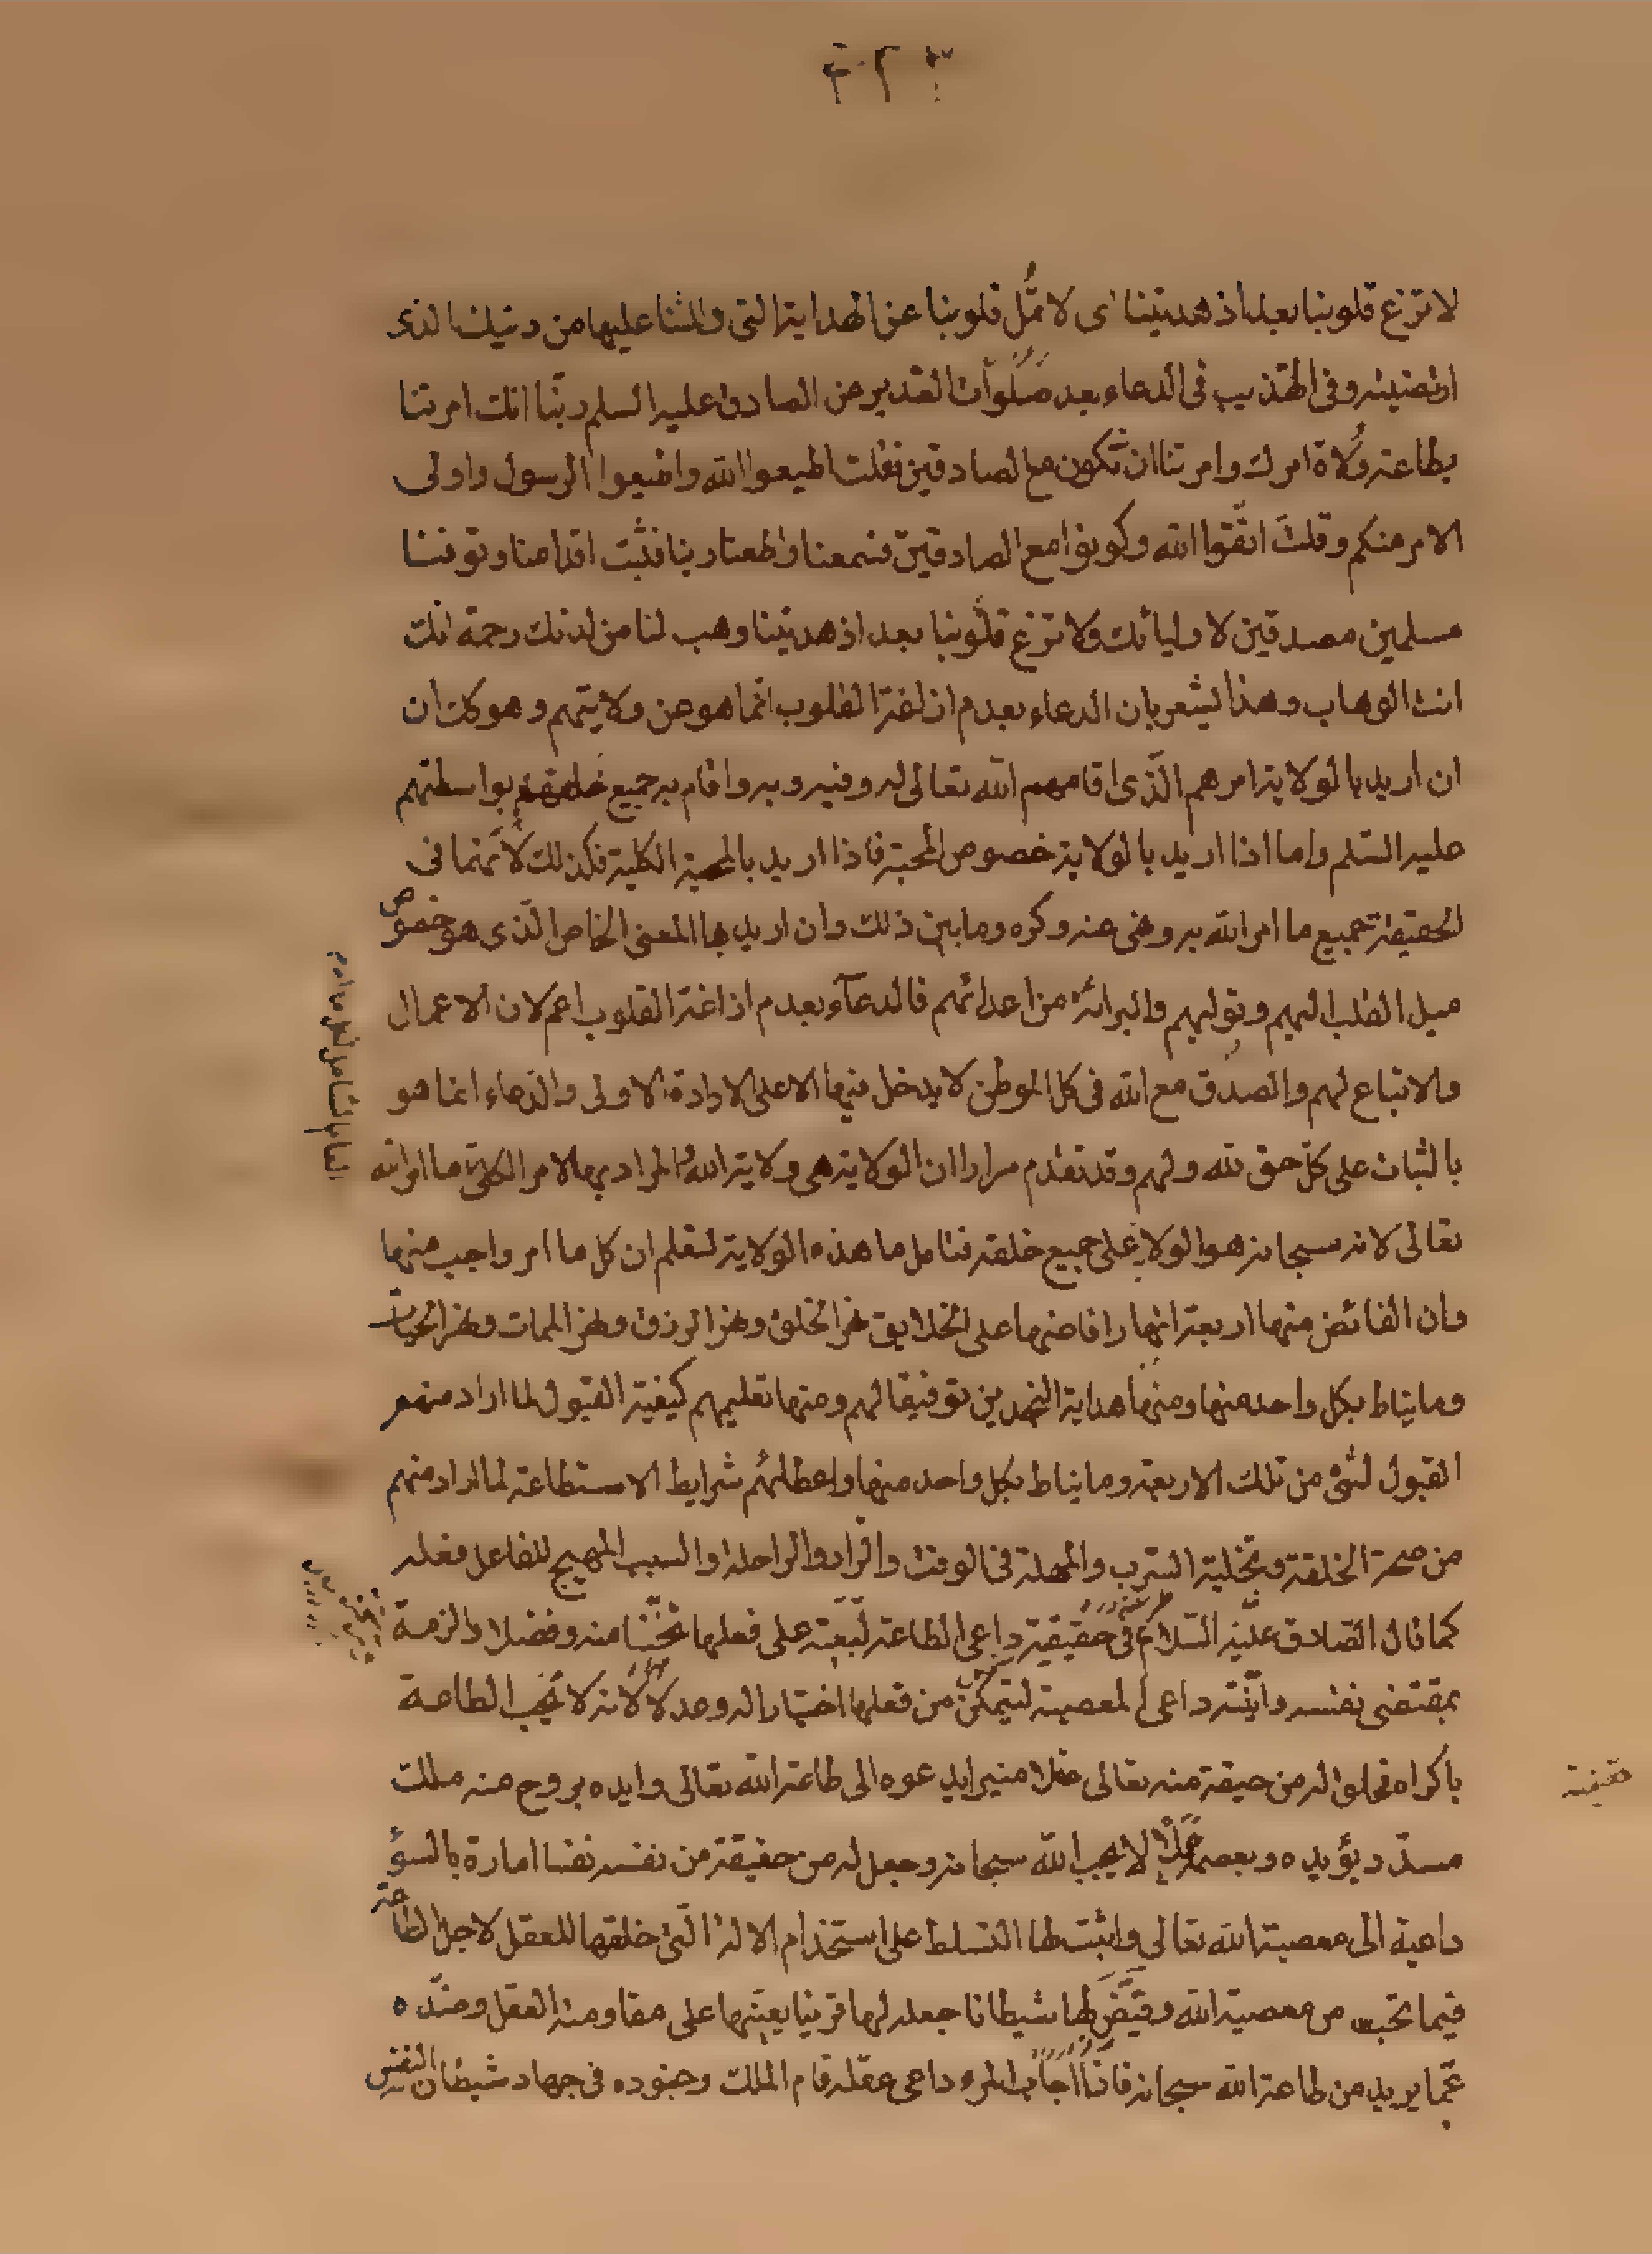 ٣٢٣
لا تزغ قلوبنا بعد اذ هديتنا اى لا تمل قلوبنا عن الهداية التى دللتنا عليها من دينك الذى
ارتضيته وفى التهذيب فى الدعاء بعد صلوات الغدير عن الصادق عليه السلم ربنا انك امرتنا
بطاعة ولاة امرك وامرتنا ان نكون مع الصادقين فقلت اطيعوا الله واطيعوا الرسول واولى
الامر منكم وقلت اتقوا الله وكونوا مع الصادقين فسمعنا واطعنا ربنا فثبت اقدامنا وتوفنا
مسلمين مصدقين لاوليائك ولا تزغ قلوبنا بعد اذ هديتنا وهب لنا من لدنك رحمة انك
انت الوهاب وهذا يشعر بان الدعاء بعدم ازاغة القلوب انما هو عن ولايتهم وهو كك ان
ان اريد بالولاية امرهم الذى اقامهم الله تعالى له وفيه وبه واقام به جميع خلقه بواسطتهم
عليه السلم واما اذا اريد بالولاية خصوص المحبة فاذا اريد بالمحبة الكلية فكذلك لانهما فى
الحقيقة جميع ما امر الله به ونهى عنه وكره وما بين ذلك وان اريد بها المعنى الخاص الذى هو خصوص
ميل القلب اليهم وتوليهم والبرائة من اعدائهم فالدعاء بعدم ازاغة القلوب اعم لان الاعمال
والاتباع لهم والصدق مع الله فى كل الموطن لا يدخل فيها الا على الارادة الاولى والدعاء انما هو
بالثبات على كل حق لله ولهم وقد تقدم مرارا ان الولاية هى ولاية الله المراد بها الامر الكلى ما امر الله
تعالى لانه سبحانه هو الولا على جميع خلقه فتامل ما هذه الولاية لتعلم ان كل ما امر واجب منها
وان الفائض منها اربعة انهار افاضها على الخلايق نهر الخلق ونهر الرزق ونهر الممات ونهر الحيات
وما يناط بكل واحد منها ومنها هداية النجدين توفيقا لهم ومنها تعليمهم كيفية القبول لما اراد منهم
القبول لشئ من تلك الاربعة وما يناط بكل واحد منها واعطائهم شرايط الاستطاعة لما اراد منهم
من صحة الخلقة وتخلية السرب والمهلة فى الوقت والزاد والراحلة والسبب المهيج للفاعل فعله
كما قال الصادق عليه السلام فى حقيقة داعى الطاعة لتبعثه على فعلها تحننا منه وفضلا والزمة
بمقتضى نفسه وانيته داعى المعصية ليتمكن من فعلها اختيارا له وعدلا لانه لا يحب الطاعة
باكراه فخلق له من حيقة منه تعالى عقلا منيرا يدعوه الى طاعة الله تعالى وايده بروح منه ملك
مسدد يؤيده ويعصمه لا يحب الله سبحانه وجعل له من حقيقة من نفسه نفسا امارة بالسوء
داعية الى معصية الله تعالى واثبت لها التسلط على استخدام الالة التى خلقها للعقل لاجل الطاعة
فيما تحب من معصية الله وقيض لها شيطانا جعله لها قرينا يعينها على مقاومة العقل وضده
عما يريد من طاعة الله سبحانه فاذا اجاب المرء داعى عقله قام الملك وجنوده فى جهاد شيطان النفس
حقيقة